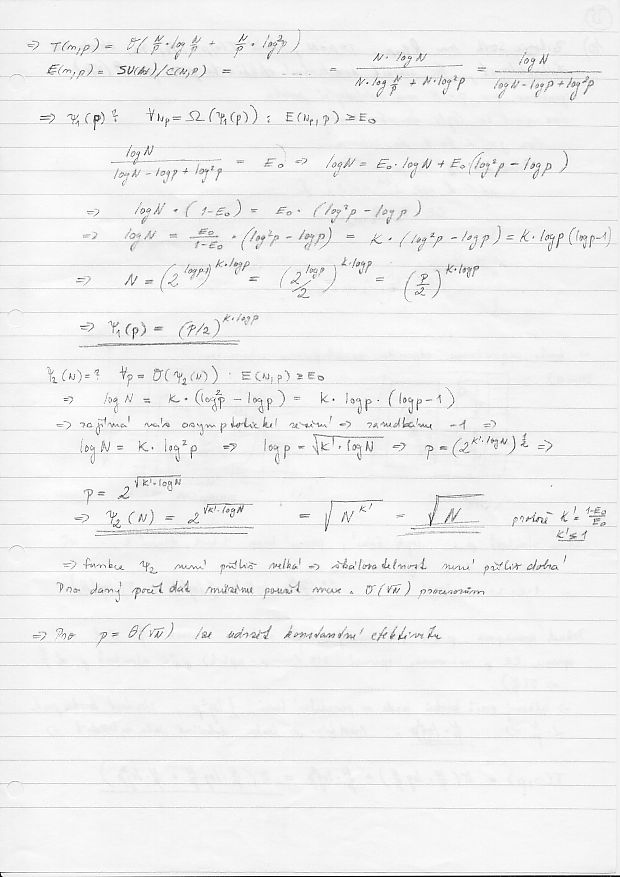 ⇒ T(n,p) = O( N/p · log N/p + N/p · log²p )
E(n,p) = SU(n)/C(n,p) = ..... = N · log N / (N · log N/p + N · log²p) = log N / (log N - log p + log²p)
⇒ Ψ₁(p)? ∀Np = Ω(Ψ₁(p)) : E(Np, p) ≥ E₀
log N / (log N - log p + log²p) = E₀ ⇒ log N = E₀ · log N + E₀(log²p - log p)
⇒ log N · (1-E₀) = E₀ · (log²p - log p)
⇒ log N = E₀/(1-E₀) · (log²p - log p) = K · (log²p - log p) = K · log p (log p-1)
⇒ N = (2^(log p-1))^(K·log p) = (2^(log p)/2)^(K·log p) = (p/2)^(K·log p)
⇒ Ψ₁(p) = (p/2)^(K·log p)
Ψ₂(N) = ? ∀p = O(Ψ₂(N)) · E(N,p) ≥ E₀
⇒ log N = K · (log²p - log p) = K · log p · (log p-1)
⇒ zajímá nás asymptotické ⇒ zanedbáme -1 ⇒
log N = K · log²p ⇒ log p = √(K' · log N) ⇒ p = (2^(K'·log N))^(1/2) ⇒
p = 2^√(K'·log N)
⇒ Ψ₂(N) = 2^√(K'·log N) = √(N^K') = √N protože K' = (1-E₀)/E₀
K' ≤ 1
⇒ funkce Ψ₂ není příliš velká ⇒ škálovatelnost není příliš dobrá
Pro daný počet dat můžeme použít max. O(√N) procesorům
⇒ Pro p = Θ(√N) lze udržet konstantní efektivitu